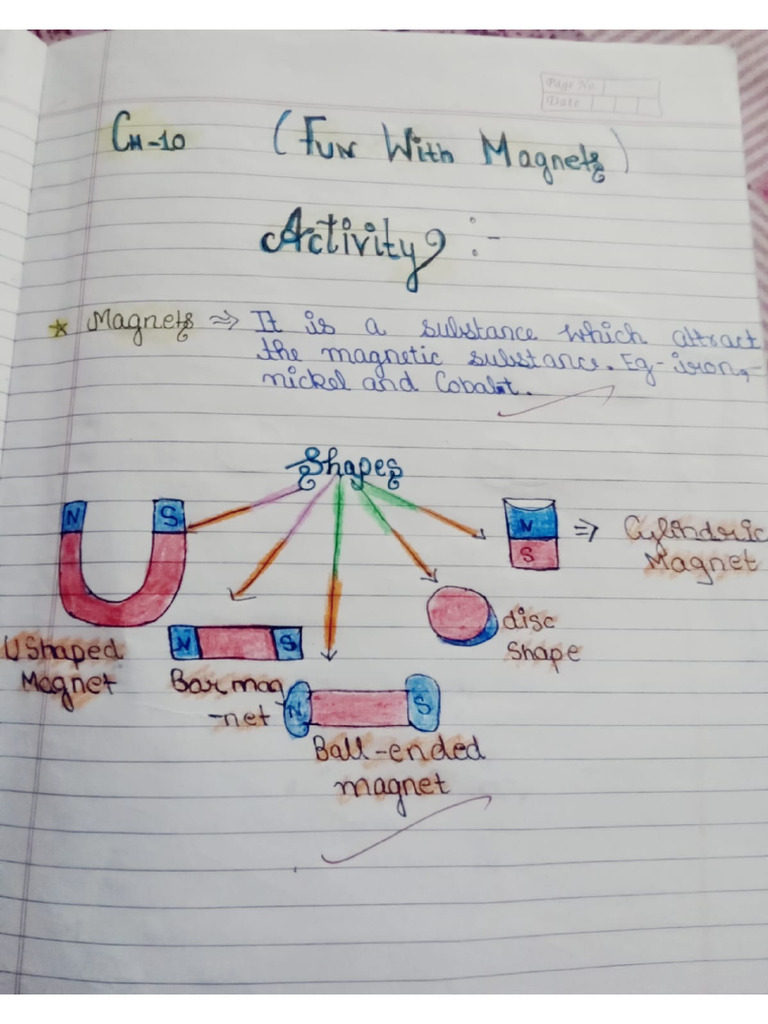 Page No.
Date
CH-10 (FUN WITH MAGNETS)
Activity :-
* Magnets ⇒ It is a substance which attract
the magnetic substance. Eg- iron,
nickel and Cobalt.
Shapes
N S
N
S
⇒ Cylindric
Magnet
U Shaped
Magnet
N S
Bar mag
-net
disc
Shape
N S
Ball-ended
magnet